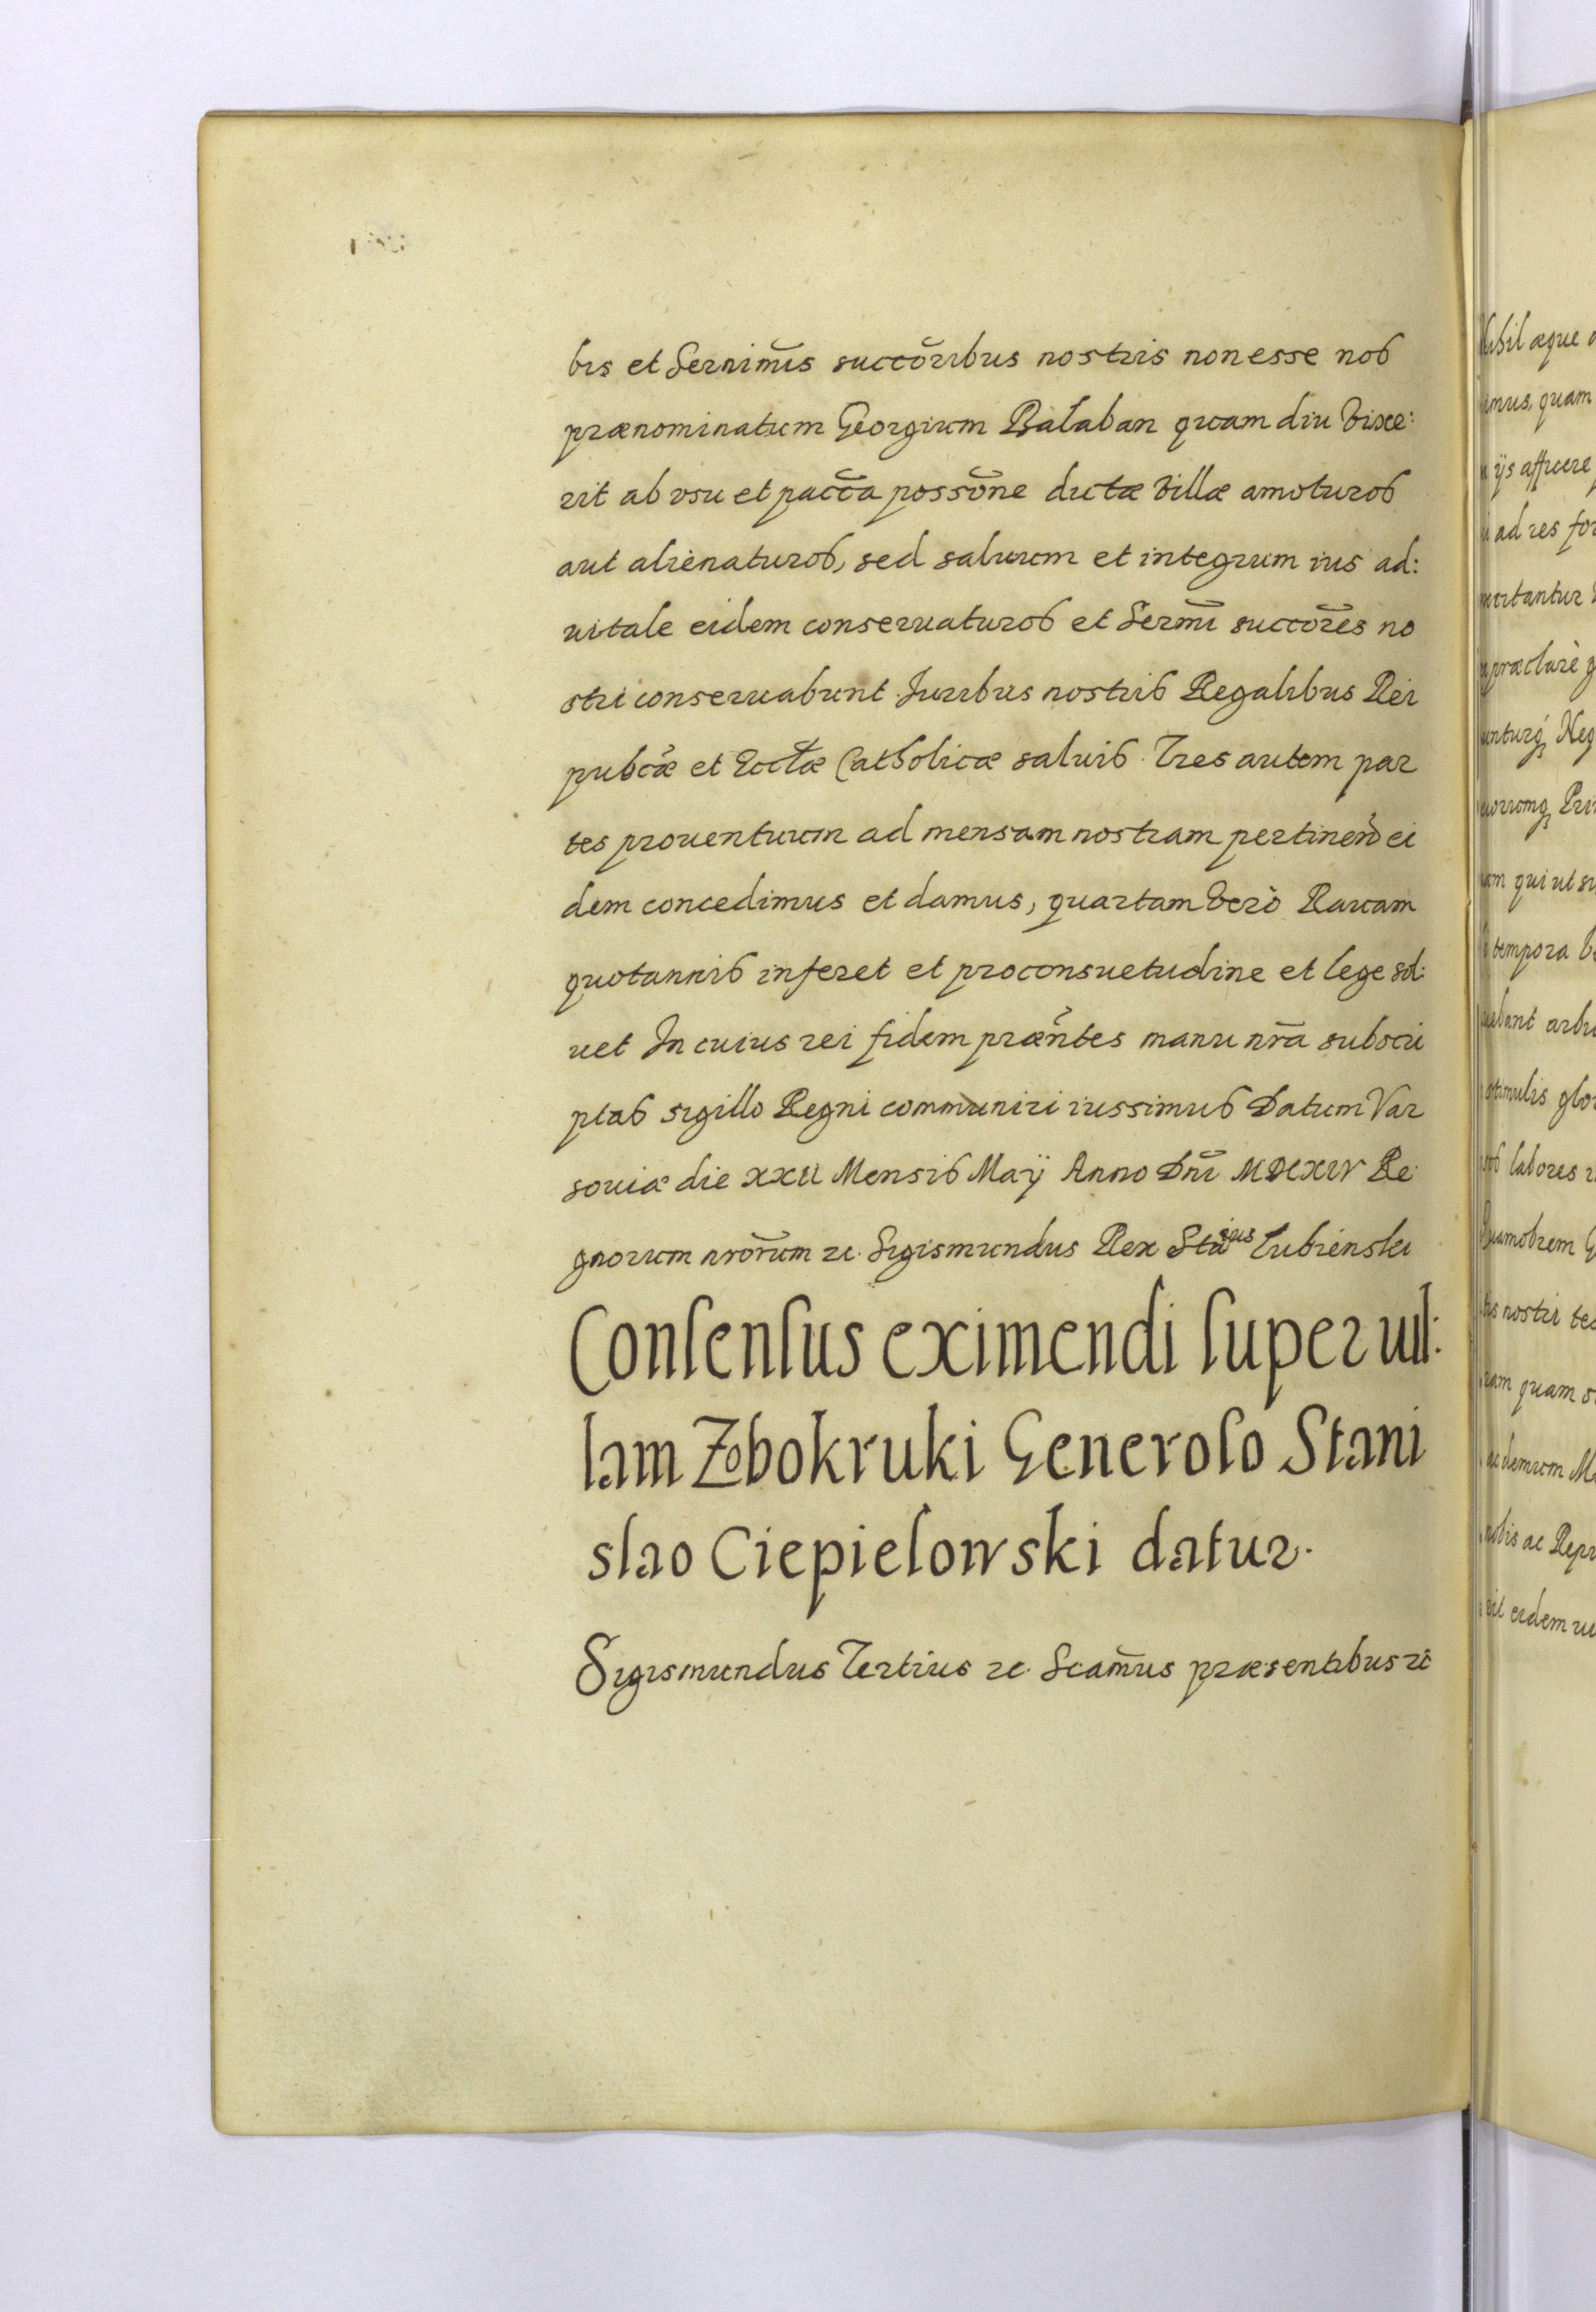 bis et Sernim̃is succõribus nostris non esse nos
prænominatum Georgium Bałaban quam diu vixe:
rit ab vsu et pacc̃a possõne dictæ villæ amoturos
aut alienaturos, sed saluum et integrum ius ad:
uitale eidem conseruaturos et Serm̃i succor̃es no
stri conseruabunt Juribus nostris Regalibus Rei
pubc̃æ et Eccłæ Catholicæ saluis. Tres autem par
tes prouentuum ad mensam nostram pertineñ ei
dem concedimus et damus, quartam verò Rauam
quotannis inferet et pro consuetudine et lege sol:
uet In cuius rei fidem præñtes manu nr̃a subscri
ptas sigillo Regni communiri iussimus Datum Var
souiæ die XXII Mensis Maÿ Anno Dñi MDCXIV Re
gnorum nror̃um zc. Sigismundus Rex Staus Łubienski
Consensus eximendi super uil:
lam Zobokruki Generoso Stani
slao Ciepielowski datur.
Sigismundus Tertius zc. Scam̃us præsentibus zc
Nihil æque
quam
ijs afficere
ad res for
præclarè
Neq
qui ut
tempora
stimulis glo
labores
Quamobrem
nostri
quam
ac demum
nobis ac Repu
eidem